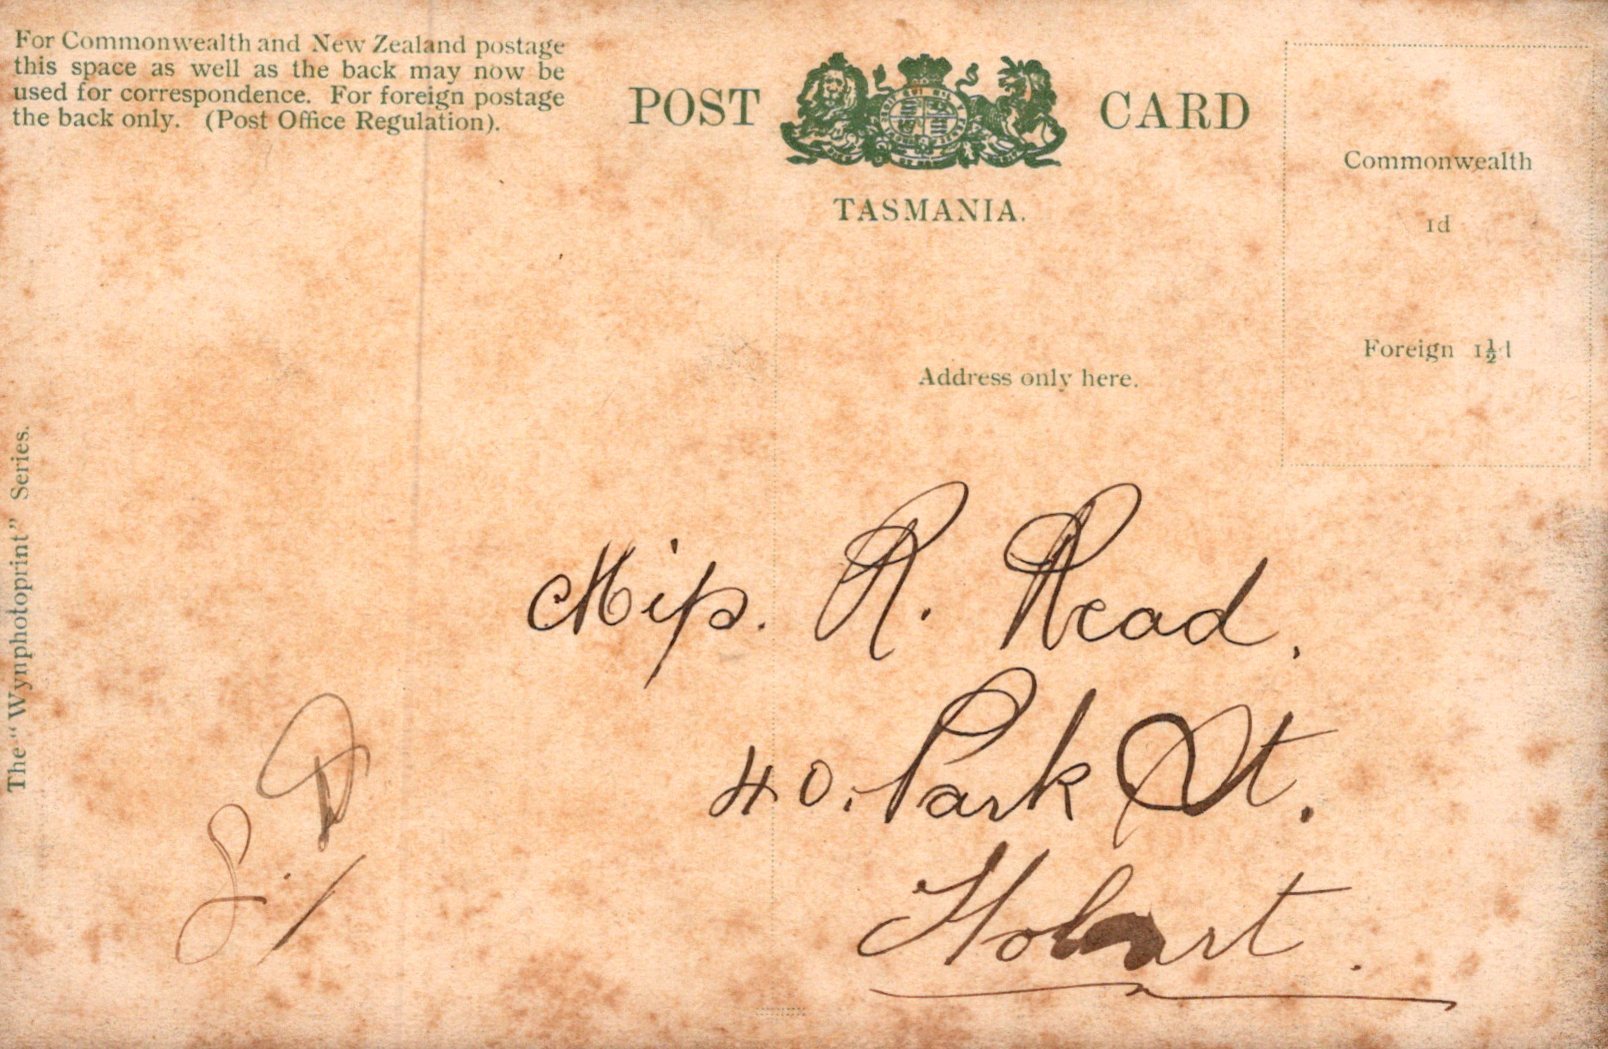 For Commonwealth and New Zealand postage
this space as well as the back may now be
used for correspondence. For foreign postage
the back only. (Post Office Regulation).
POST CARD
TASMANIA.
Commonwealth
1d
Foreign 1½d
Address only here.
The "Wynphotoprint" Series.
Miss. R. Read.
40. Park St.
Hobart.